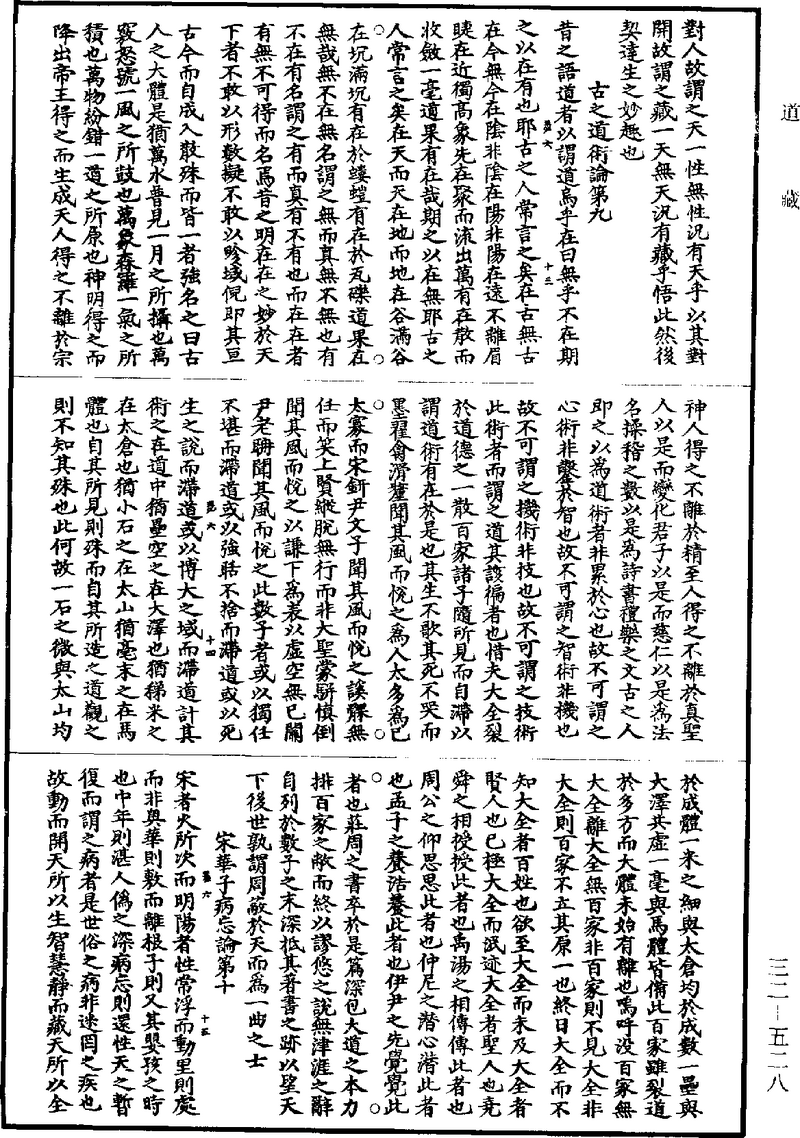 道藏
對人故謂之天一性無性況有天乎以其對
開故謂之藏一天無天況有藏乎悟此然後
契達生之妙趣也
古之道術論第九
昔之語道者以謂道烏乎在曰無乎不在期
六 十三
之以在有也耶古之人常言之矣在古無古
在今無今在陰非陰在陽非陽在遠不離眉
睫在近獨高象先在聚而流出萬有在散而
收斂一毫道果有在哉期之以在無耶古之
人常言之矣在天而天在地而地在谷滿谷
在坑滿坑有在於螻螘有在於瓦礫道果在
無哉無不在無名謂之無而真無不無也有
不在有名謂之有而真有不有也而在在者
有無不可得而名焉昔之明在在之妙於天
下者不敢以形數擬不敢以畛域倪即其亘
古今而自成入散殊而皆一者強名之曰古
人之大體是猶萬水普見一月之所攝也萬
竅怒號一風之所鼓也萬象森羅一氣之所
積也萬物紛錯一道之所原也神明得之而
降出帝王得之而生成天人得之不離於宗
神人得之不離於精至人得之不離於真聖
人以是而變化君子以是而慈仁以是為法
名操稽之數以是為詩書禮樂之文古之人
即之以為道術者非累於心也故不可謂之
心術非鑿於智也故不可謂之智術非機也
故不可謂之機術非技也故不可謂之技術
此術者而謂之道其該徧者也惜夫大全裂
於道德之一散百家諸子隨所見而自滯以
謂道術有在於是也其生不歌其死不哭而
墨翟禽滑釐聞其風而悅之為人太多為己
太寡而宋鈃尹文子聞其風而悅之謑髁無
任而笑上賢縱脫無行而非大聖蒙駢慎到
聞其風而悅之以謙下為表以虛空無已關
尹老聃聞其風而悅之此數子者或以獨任
不堪而滯道或以強聒不捨而滯道或以死
六 十四
生之說而滯道或以博大之域而滯道計其
術之在道中猶壘空之在大澤也猶稊米之
在太倉也猶小石之在太山猶毫末之在馬
體也自其所見則殊而自其所造之道觀之
則不知其殊也此何故一石之微與太山均
於成體一米之細與太倉均於成數一壘與
大澤共虛一毫與馬體皆備此百家雖裂道
於多方而大體未始有離也嗚呼沒百家無
大全離大全無百家非百家則不見大全非
大全則百家不立其原一也終日大全而不
知大全者百姓也欲至大全而未及大全者
賢人也已極大全而泯迹大全者聖人也堯
舜之相授授此者也禹湯之相傳傳此者也
周公之仰思思此者也仲尼之潛心潛此者
也孟子之養浩養此者也伊尹之先覺覺此
者也莊周之書卒於是篇深包大道之本力
排百家之敝而終以謬悠之說無津涯之辭
自列於數子之末深抵其著書之跡以聖天
下後世孰謂周蔽於天而為一曲之士
宋華子病忘論第十
六 十五
宋者火所次而明陽者性常浮而動里則處
而非奧華則敷而離根子則又其嬰孩之時
也中年則湛人偽之深病忘則還性天之暫
復而謂之病者是世俗之病非迷罔之疾也
故動而開天所以生智慧靜而藏天所以全
三二—五二八